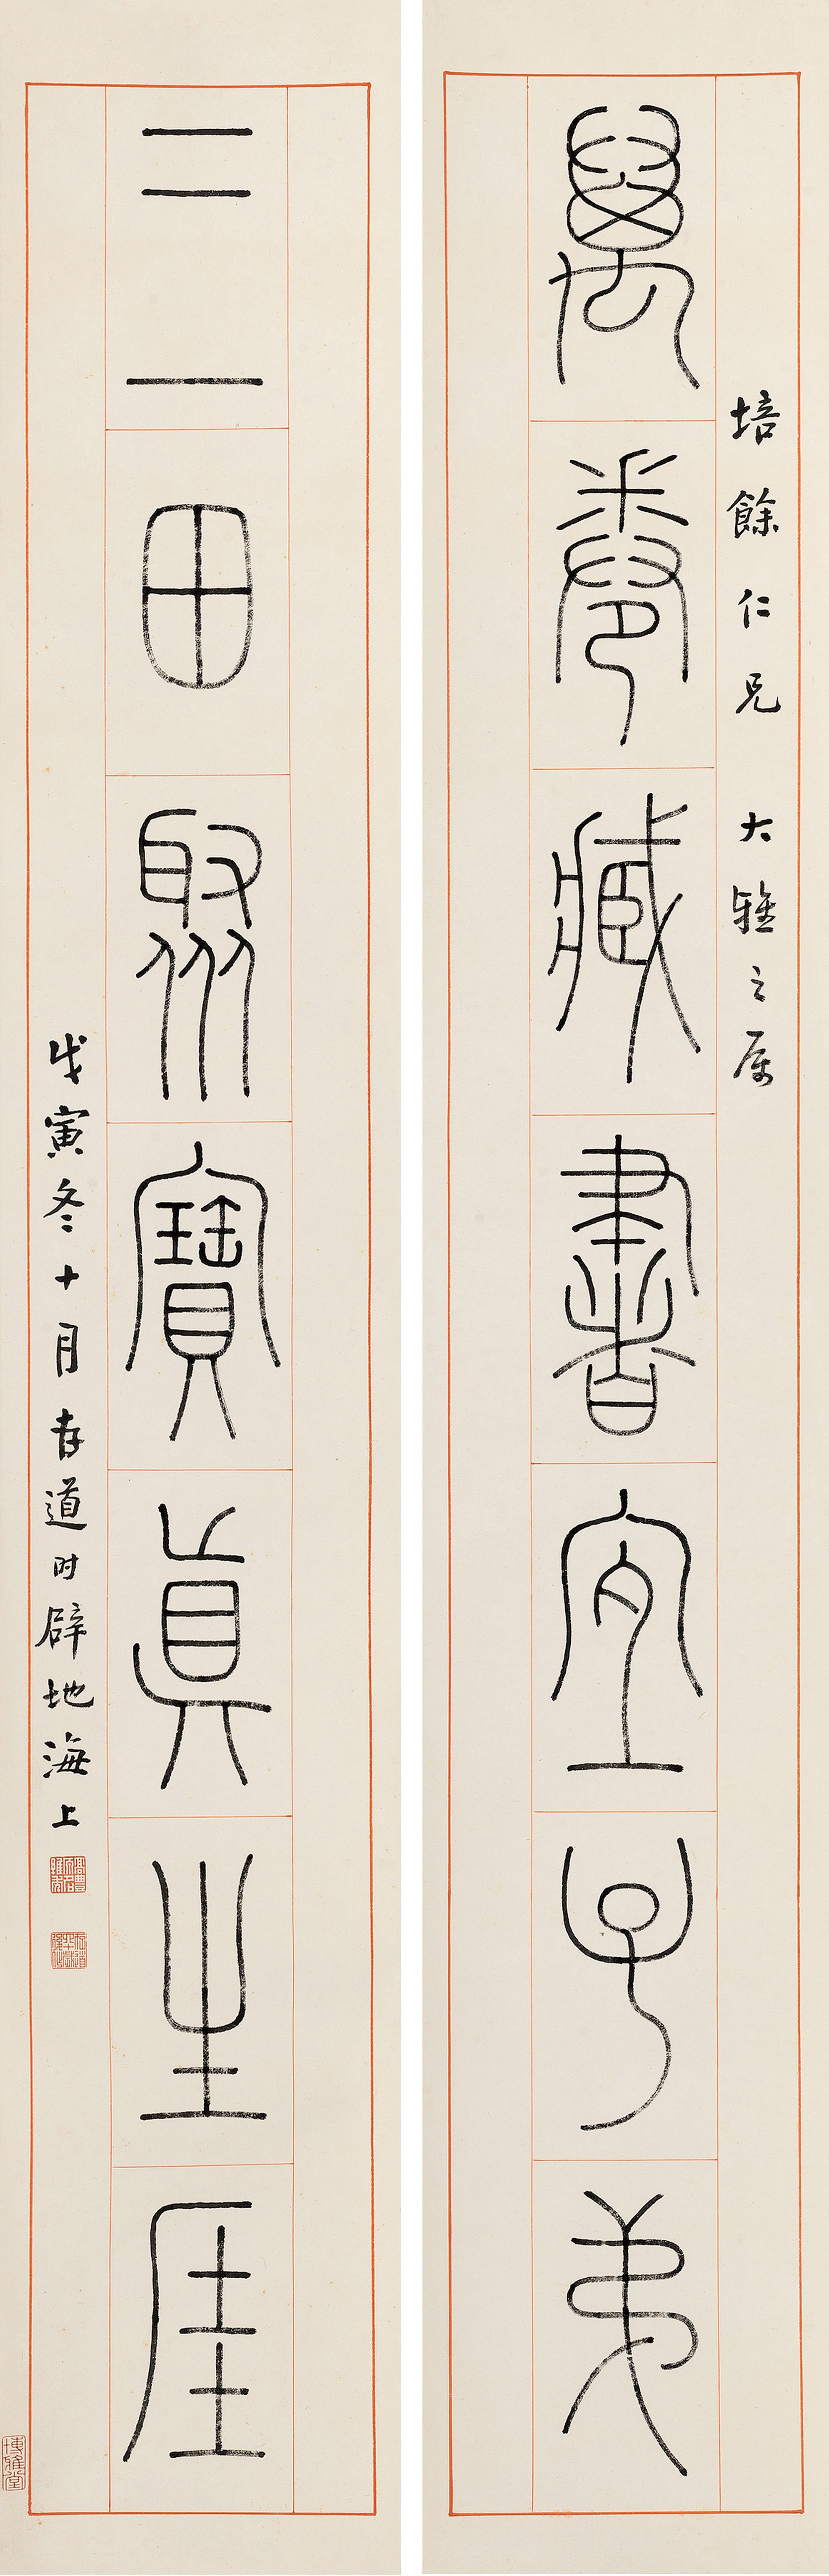 培餘仁兄 大雅之属
萬卷藏書宜子弟
三田聚寶眞生厓
戊寅冬十月存道时辟地海上
博雅堂